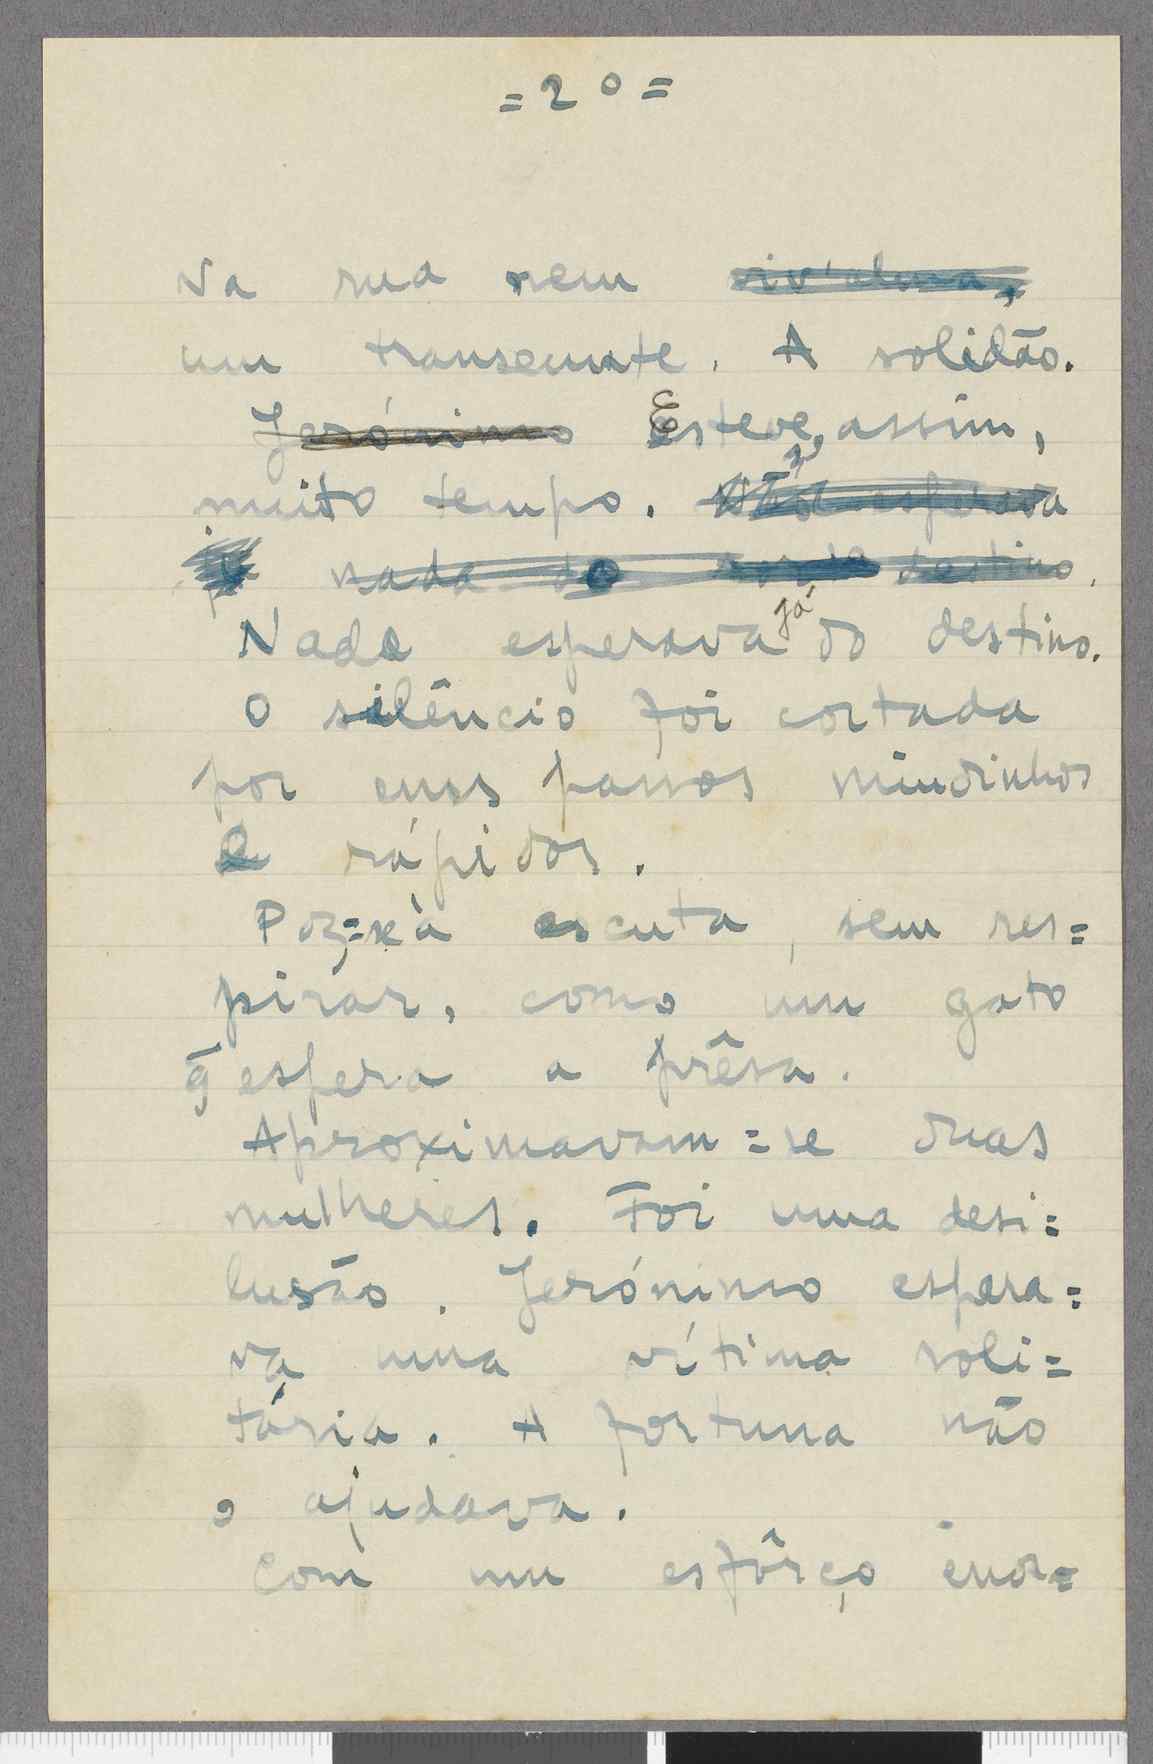 =20=
Na rua nem viv'alma,
um transeunte. A solidão.
Jerónimo Esteve, assim,
muito tempo. Não esperava
nada do destino.
Nada esperava já do destino.
O silêncio foi cortada
por uns passos miudinhos
e rápidos.
Poz=se à escuta, sem res=
pirar, como um gato
q̄ espera a prêsa.
Aproximavam=se duas
mulheres. Foi uma desi=
lusão. Jerónimo espera=
va uma vítima soli=
tária. A fortuna não
o ajudava.
Com um esfôrço enor=